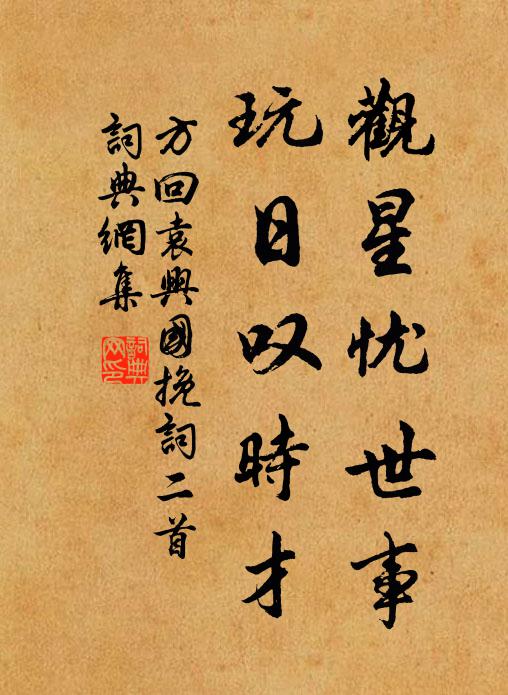 觀星忧世事
玩日叹時才
方回袁興國挽詞二首
詞典網集
詞典網印